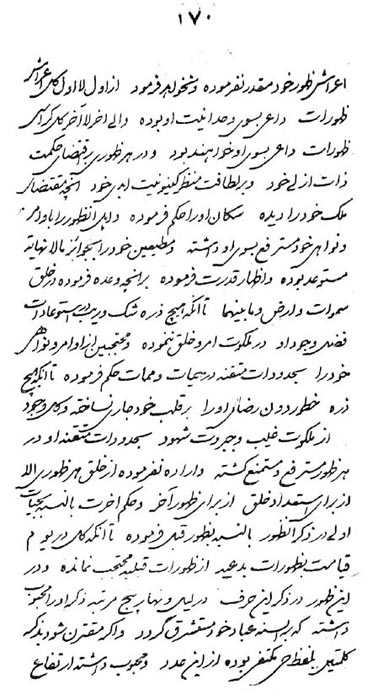 ۱۷۰
اعراش ظهور خود مقدر نفرموده و نخواهد فرمود از اول لا اول کل اعراش
ظهورات داعی بسوی وحدانیت او بوده و الی اخر لا آخر کل کراسی
ظهورات داعی بسوی او خواهند بود و در هر ظهوری بر مقتضای حکمت
ذات ازلی خود و بر لطافت منظر کینونیت ابدی خود آنچه مقتضای
ملک خود را دیده سکان او را حکم فرموده و اهل آنظهور را باوامر
و نواهی خود مترفع بسوی او داشته و مطیعین خود را بجوائز مالا نهایه
مستوعد بوده و اظهار قدرت فرموده بر آنچه وعده فرموده در خلق
سموات و ارض و ما بینهما تا آنکه هیچ ذره شک و ریب در استوعادات
فضل وجود او در ملکوت امر و خلق ننموده و محتجبین از اوامر و نواهی
خود را بحدودات متقنه در حیات و ممات حکم فرموده تا آنکه هیچ
ذره خطور دون رضای او را بر قلب خود جاری نساخته و کل وجود
از ملکوت غیب و جبروت شهود بحدودات متقنه او در
هر ظهور مترفع و متمنع گشته و اراده نفرموده از خلق هر ظهوری الا
از برای استعداد خلق از برای ظهور آخر و حکم اخرت بالنسبه بحیات
اولی در ذکر آنظهور بالنسبه بظهور قبل فرموده تا آنکه کل در یوم
قیامت بظهورات بدعیه از ظهورات قبلیه محتجب نمانده و در
این ظهور در ذکر این حرف در لیل و نهار پنج مرتبه ذکر او را محبوب
داشته که بر السنه عباد خود مستشرق گردد و اگر مقترن شود بذکر
کلمتین بلفظ حی مکتفی بوده از این عدد و محبوب داشته ارتفاع